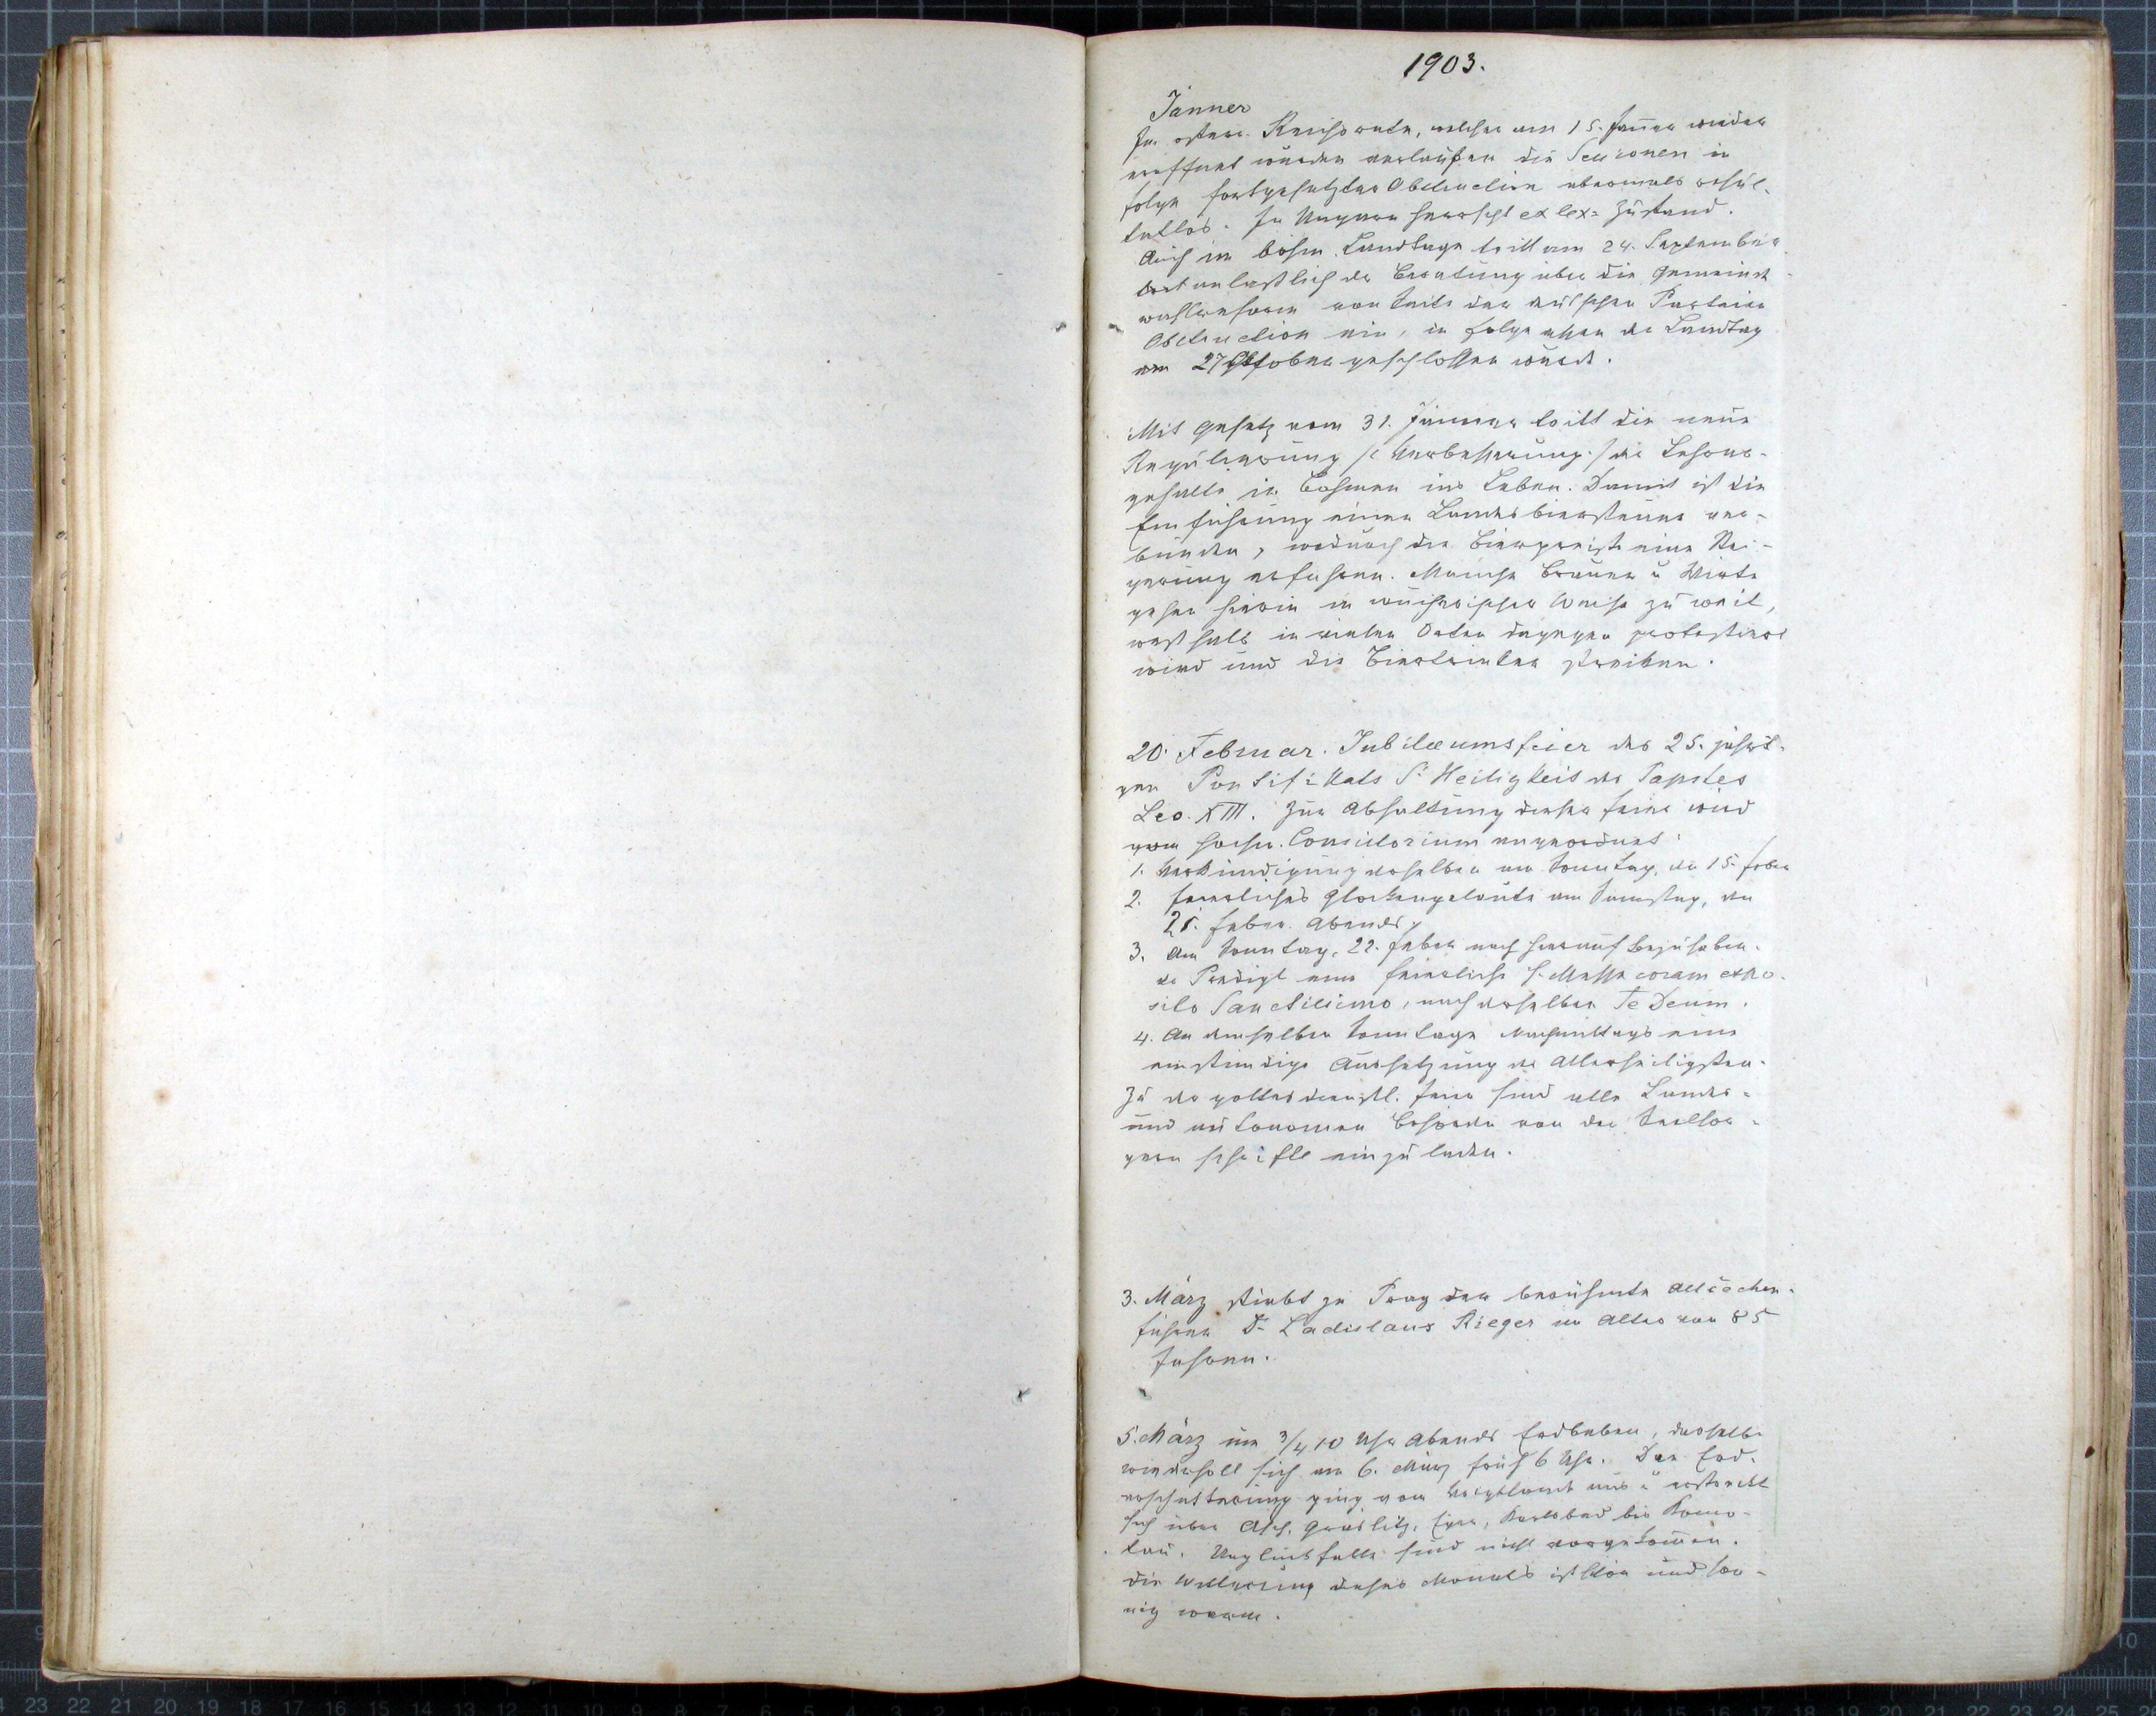 1903.
Jänner
Im österr. Reichsrate, welcher am 15. Jänner wieder
eröffnet wurde verlaufen die Sessionen in
folge fortgesetzter Obstruction abermals resul-
tatlos. In Ungarn herrscht ex lex-Zustand.
Auch im böhm. Landtage tritt am 24. September
anlaßlich der Beratung über die Gemeinde-
wahlreform von Seite der deutschen Parteien
Obstruction ein, in folge dessen der Landtag
am 27 Oktober geschlossen wurde.
Mit Gesetz vom 31. Jänner tritt die neue
Regulierung /: Verbesserung :/ der Lehrer-
gehalte in Böhmen ins Leben. Damit ist die
Einführung einer Landesbiersteuer ver-
bunden, wodurch die Bierpreise eine Stei-
gerung erfuhren. Manche Brauer u Wirte
gehen hierin in wucherischer Weise zu weit,
weßhalb in vielen Orten dagegen protestirt
wird und die Biertrinker streiken.
20. Februar. Jubilæumsfeier des 25. jähri-
gen Pontifikats Sr Heiligkeit des Papstes
Leo XIII. Zur Abhaltung dieser Feier wird
vom hochw. Consistorium angeordnet:
1. Verkündigung derselben am Sonntag, den 15. Feber
2. Feierliches Glockengeläute am Samstag, den
21. Feber. Abends,
3. Am Sonntag, 22. Feber nach hierauf bezuhaben-
der Predigt eine feierliche h. Messe coram expo-
sito Sanctissimo, nach derselben Te Deum.
4. An demselben Sonntage Nachmittags eine
einstündige Aussetzung des Allerheiligsten.
Zu der gottesdienstl. Feier sind alle Landes-
und autonomen Behörden von den Seelsor-
gern schriftl einzuladen.
3. März stirbt zu Prag der berühmte Altčechen-
führer Dr Ladislaus Rieger im Alter von 85
Jahren.
5. März um 3/4 10 Uhr Abends Erdbeben, dasselbe
wiederholt sich am 6. März früh 6 Uhr. Die Erd-
erschütterung ging vom Voigtlande aus u erstreckt
sich über Asch, Graslitz, Eger, Karlsbad bis Komo-
tau. Unglücksfälle sind nicht vorgekommen.
Die Witterung dieses Monats ist schön und son-
nig warm.